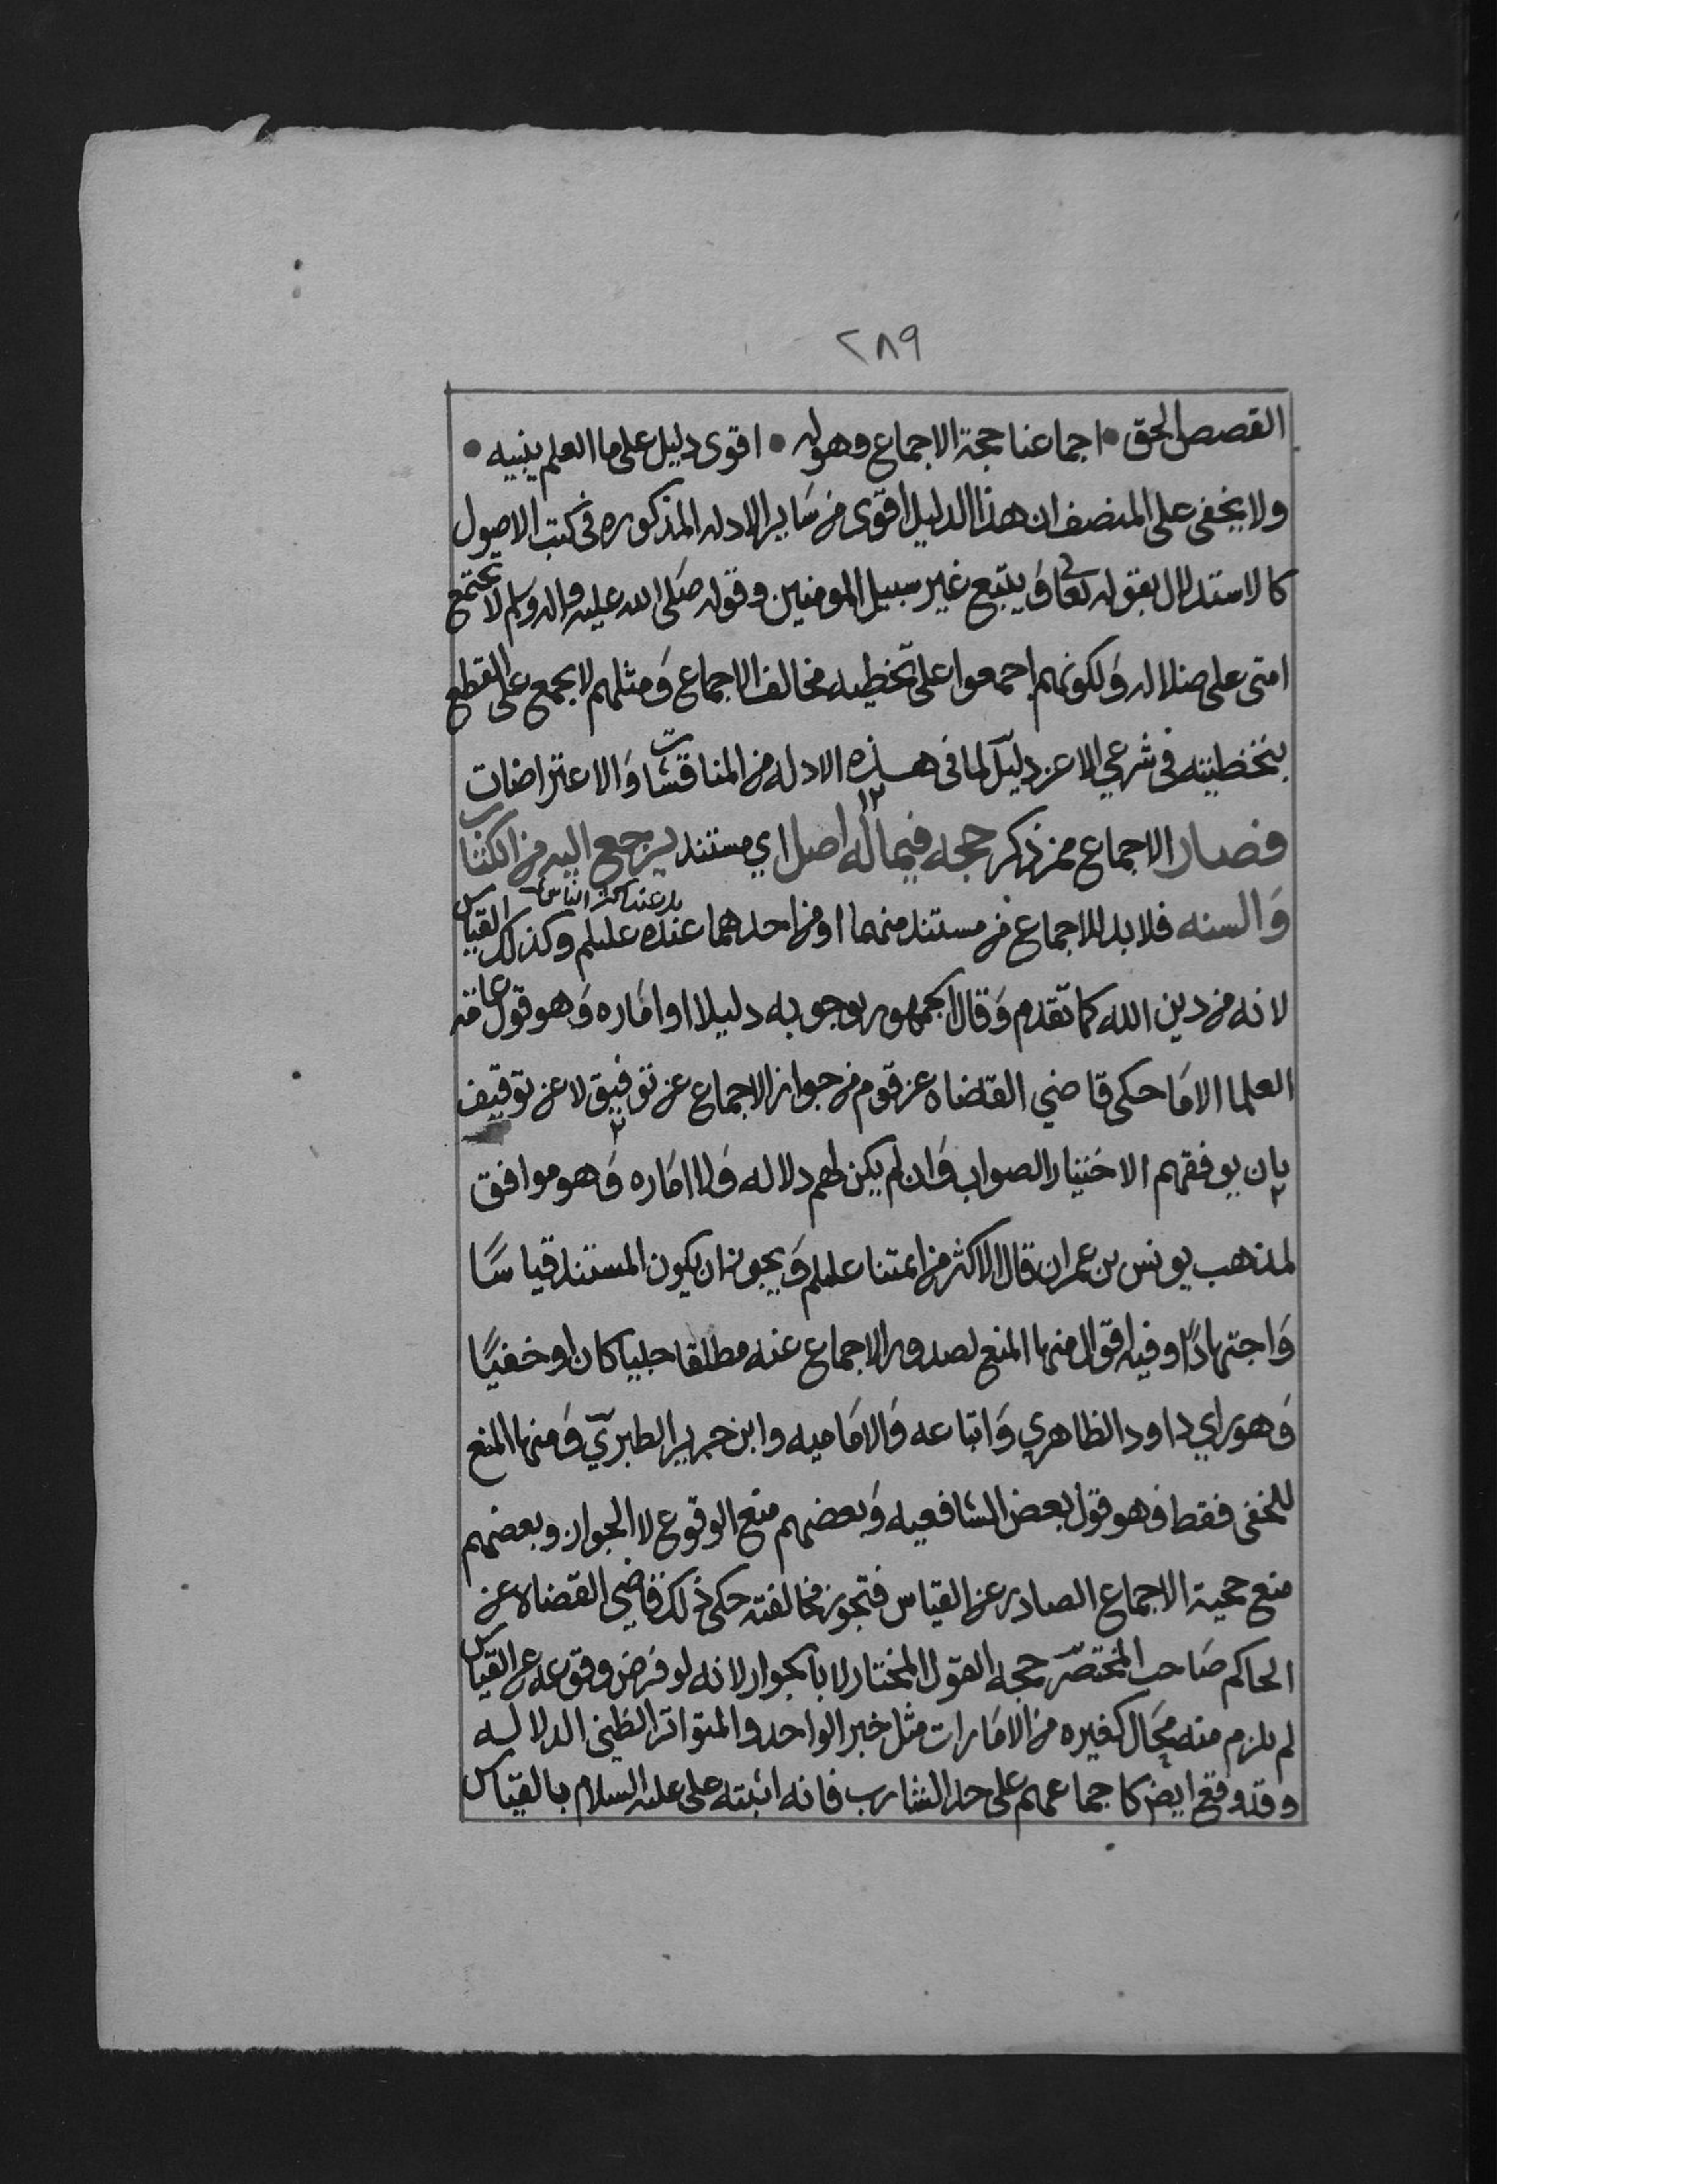 ٢٨٩
القصص الحق • اجماعنا حجة الاجماع وهوله • اقوى دليل على ما العلم ينبيه •
ولا يخفى على المنصف ان هذا الدليل اقوى من ساير الادله المذكوره في كتب الاصول
كالاستدلال بقوله تعالى ويتبع غير سبيل المومنين وقوله صلى الله عليه واله وسلم لا تجتمع
امتى على ضلاله ولكونهم اجمعوا على تخطيه مخالف الاجماع ومثلهم لا يجمع على القطع
بتخطيته في شرعي الا عن دليل لما في هذه الادله من المناقشات والاعتراضات
فصار الاجماع ممن ذكر حجه فيما له اصل اي مستند يرجع اليه من الكتاب
والسنه فلا بد للاجماع من مستند منهما او من احدهما عنده عليلم وكذلك القياس
لانه من دين الله كما تقدم وقال الجمهور بوجوبه دليلا او اماره وهو قول عامة
العلما الا ما حكى قاضي القضاه عن قوم من جواز الاجماع عن توفيق لا عن توقيف
بان يوفقهم الاختيار الصواب وان لم يكن لهم دلاله ولا اماره وهو موافق
لمذهب يونس بن عمران قال الاكثر من ائمتنا عليلم ويجوز ان يكون المستند قياسًا
واجتهادًا وفيه اقوال منها المنع لصدور الاجماع عنه مطلقا جليا كان او خفيًا
وهو راي داود الظاهري واتباعه والاماميه وابن جرير الطبري ومنها المنع
للخفى فقط وهو قول بعض الشافعيه وبعضهم منع الوقوع لا الجواز وبعضهم
منع حجية الاجماع الصادر عن القياس فتجوز مخالفته حكى ذلك قاضي القضاه عن
الحاكم صاحب المختصر حجه القول المختار لا بالجواز لانه لو فرض وقوعه عن القياس
لم يلزم منه محال كغيره من الامارات مثل خبر الواحد والمتواتر الظني الدلاله
وقد وقع ايض كاجماعهم على حد الشارب فانه اثبته على عليه السلام بالقياس